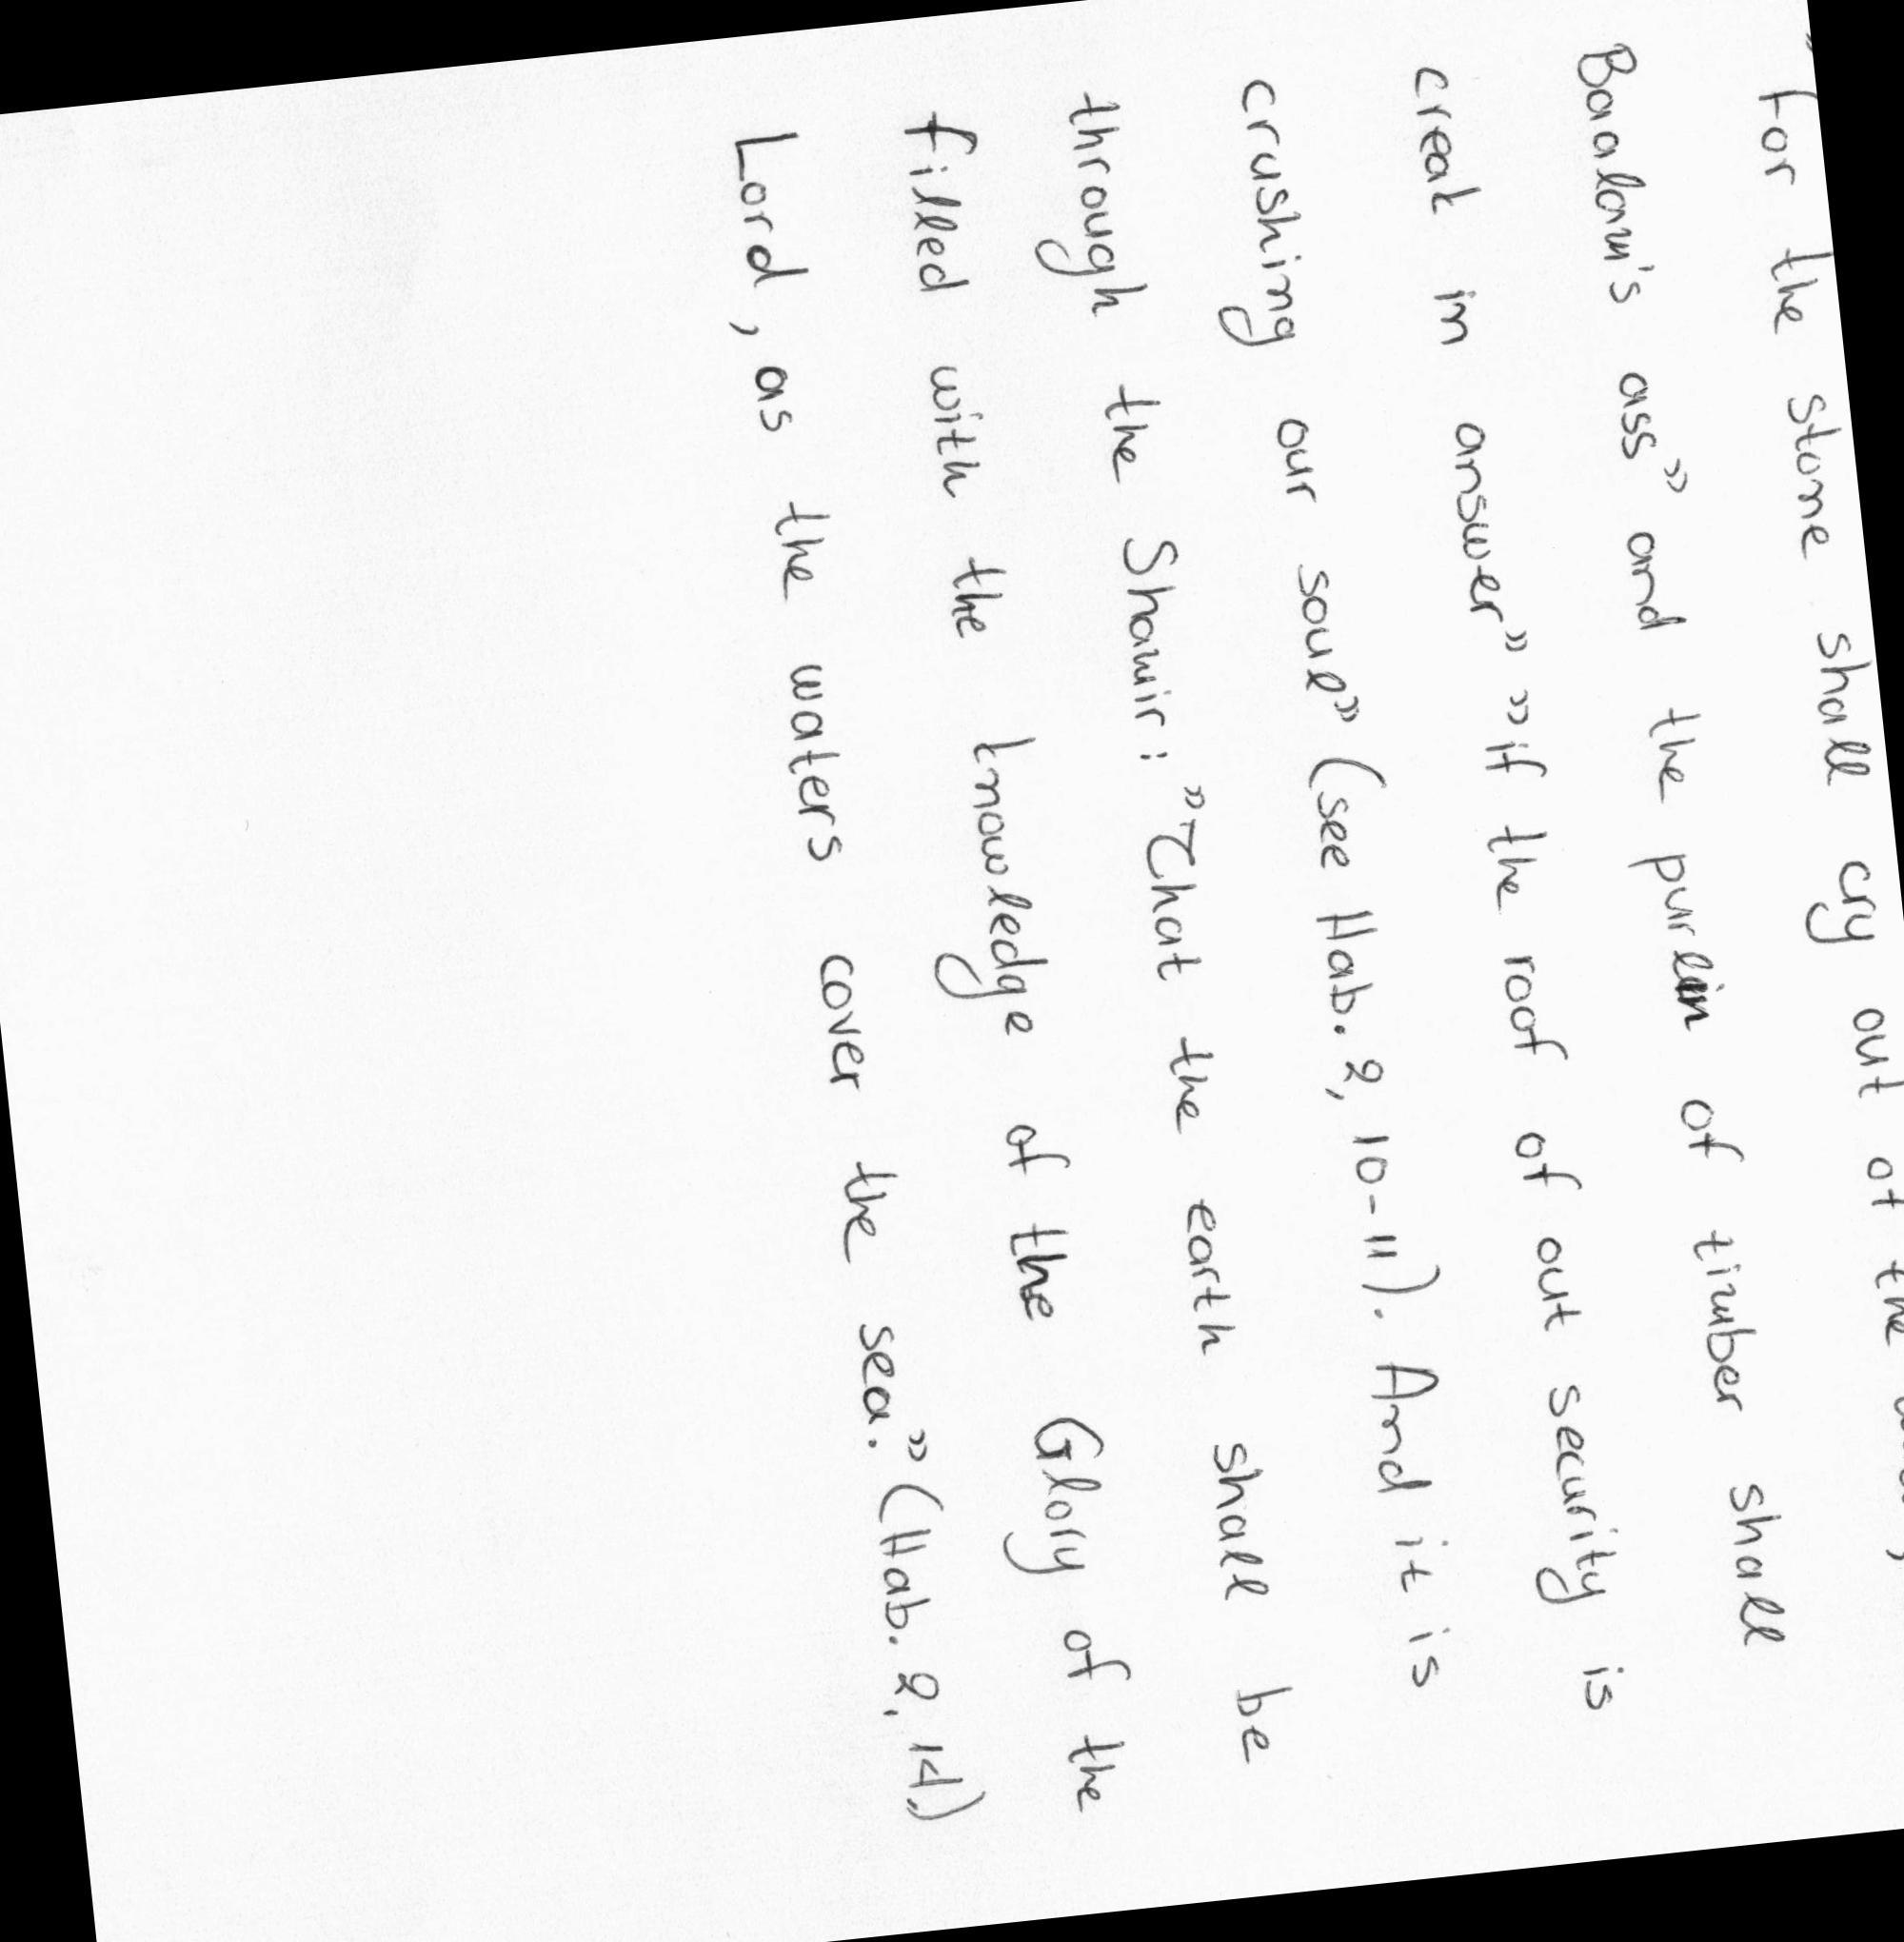 "For the stone shall cry out of the
Baalam's ass" and the purlin of timber shall
creak in answer" "if the roof of out security is
crushing our soul" (see Hab. 2, 10-11). And it is
through the Shamir: "That the earth shall be
filled with the knowledge of the Glory of the
Lord, as the waters cover the sea." (Hab. 2, 14.)